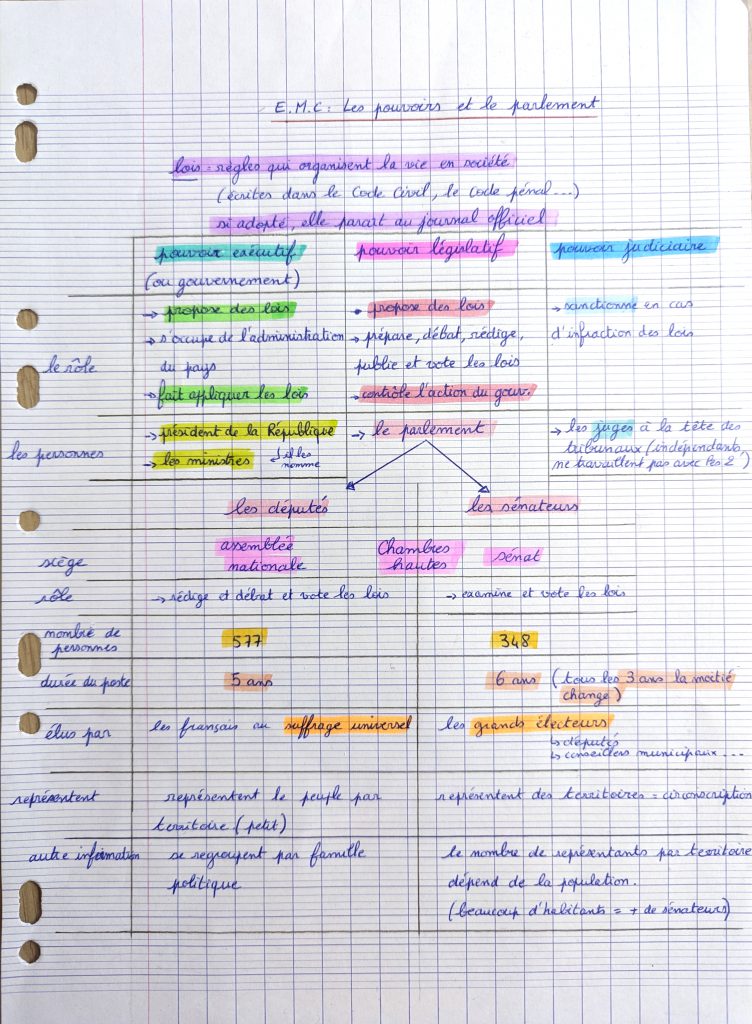 E.M.C : Les pouvoirs et le parlement
lois = règles qui organisent la vie en société
(écrites dans le Code Civil, le Code pénal ...)
si adopté, elle parait au journal officiel
pouvoir exécutif
(ou gouvernement)
pouvoir législatif
pouvoir judiciaire
le rôle
→ propose des lois
→ s'occupe de l'administration
du pays
→ fait appliquer les lois
→ propose des lois
→ prépare, débat, rédige,
publie et vote les lois
→ contrôle l'action du gouv.
→ sanctionne en cas
d'infraction des lois
les personnes
→ président de la République
→ les ministres
il les
nomme
→ le parlement
→ les juges à la tête des
tribunaux (indépendants
ne travaillent pas avec les 2)
les députés
les sénateurs
siège
assemblée
nationale
Chambres
hautes
sénat
rôle
→ rédige et débat et vote les lois
→ examine et vote les lois
nombre de
personnes
577
348
durée du poste
5 ans
6 ans (tous les 3 ans la moitié
change)
élus par
les français au suffrage universel
les grands électeurs
↳ députés
↳ conseillers municipaux ...
représentent
représentent le peuple par
territoire (petit)
représentent des territoires = circonscription
autre information
se regroupent par famille
politique
le nombre de représentants par territoire
dépend de la population.
(beaucoup d'habitants = + de sénateurs)